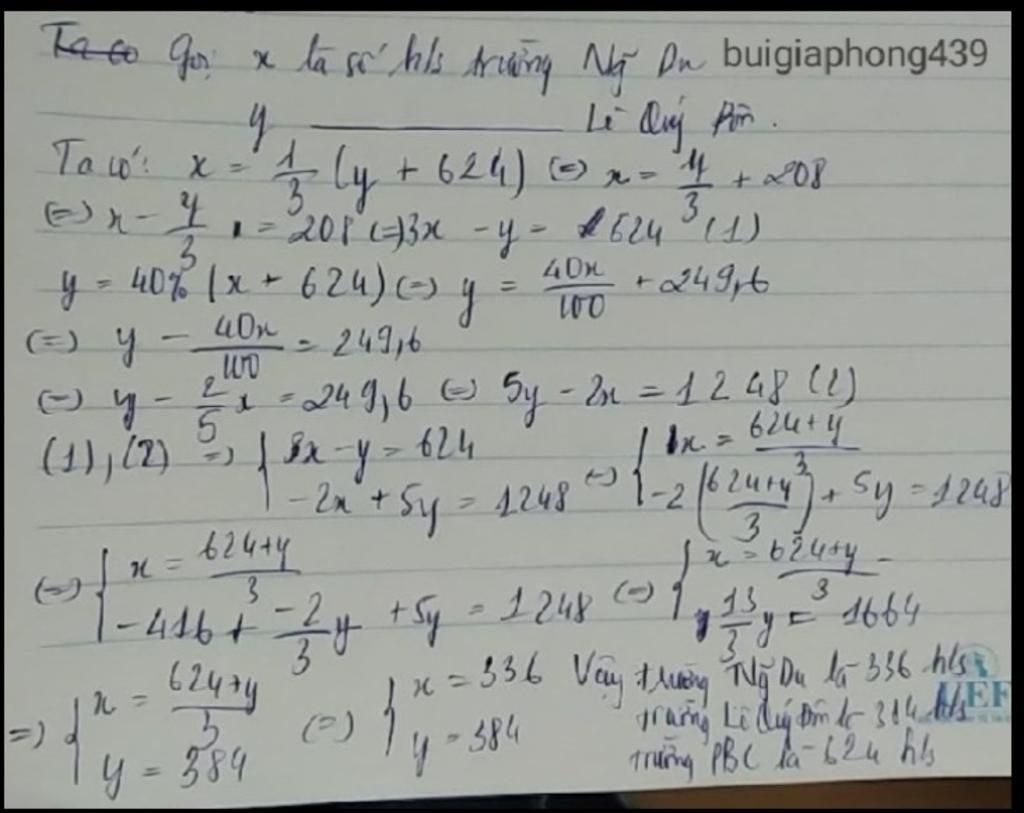 Ta có Gọi x là số h/s trường Ng Du buigiaphong439
y ———— Lê Quý Đôn.
Ta có: x = 1/3 (y + 624) (=) x = y/3 + 208
(=) x - y/3 = 208 (=) 3x - y = 624 (1)
y = 40% (x + 624) (=) y = 40x/100 + 249,6
(=) y - 40x/100 = 249,6
(=) y - 2/5 x = 249,6 (=) 5y - 2x = 1248 (2)
(1), (2) =) { 3x - y = 624 (=) { x = 624+y/3
-2x + 5y = 1248 -2 (624+y/3) + 5y = 1248
(=) { x = 624+y/3 (=) { x = 624+y/3
-416 + -2/3 y + 5y = 1248 13/3 y = 1664
=) { x = 624+y/3 (=) { x = 336 Vậy trường Ng Du là 336 h/s
y = 384 y = 384 trường Lê Quý Đôn là 384 h/s
trường PBC là 624 h/s